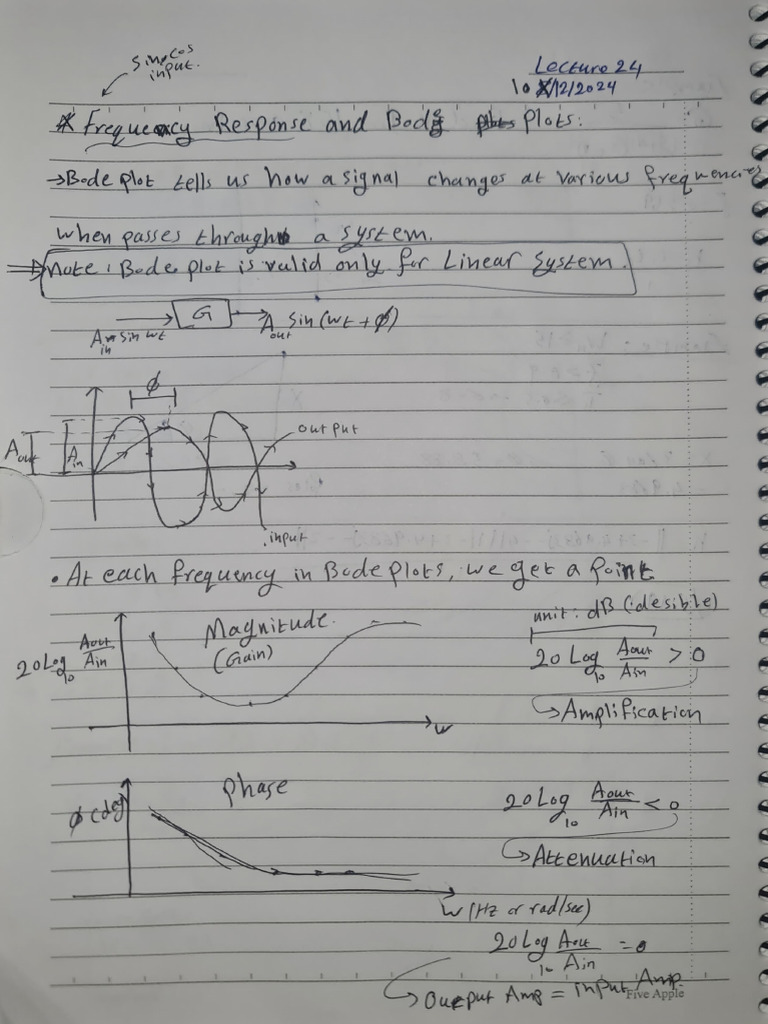 Sin, Cos
input.
Lecture 24
10/12/2024
* Frequency Response and Bode Plots:
→ Bode plot tells us how a signal changes at various frequencies
when passes through a system.
⇒ Note: Bode plot is valid only for Linear System.
A_in sin wt → G → A_out Sin(wt + ϕ)
ϕ
A_out A_in output
input
• At each frequency in Bode plots, we get a point
Magnitude
(Gain)
20 Log_10 A_out/A_in
w
unit: dB (desible)
20 Log_10 A_out/A_in > 0
↳ Amplification
phase
ϕ (deg)
w (Hz or rad/sec)
20 Log_10 A_out/A_in < 0
↳ Attenuation
20 Log_10 A_out/A_in = 0
↳ Output Amp = input Amp.
Five Apple